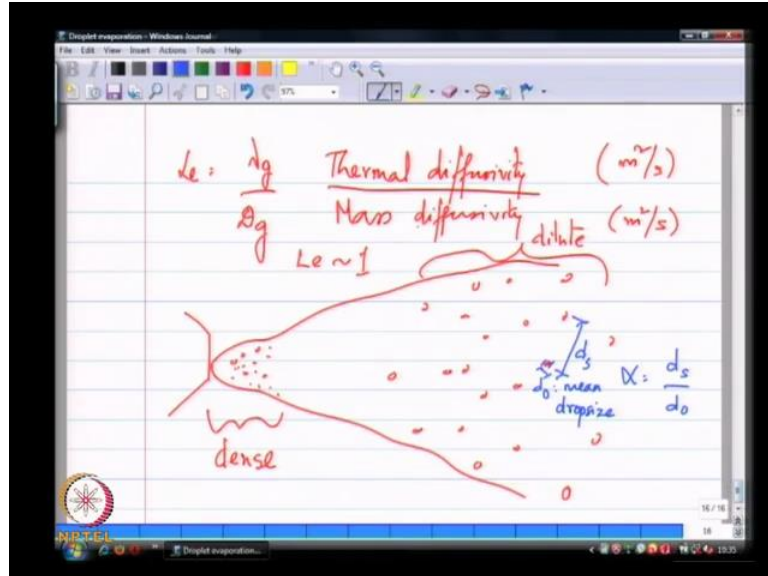 Droplet evaporation - Windows Journal
File Edit View Insert Actions Tools Help
B I
97%
Le = λg / Dg Thermal diffusivity (m²/s)
Mass diffusivity (m²/s)
Le ~ 1 dilute
ds
d0: mean dropsize
α = ds / d0
dense
16 / 16
16
NPTEL
Droplet evaporation...
10:35